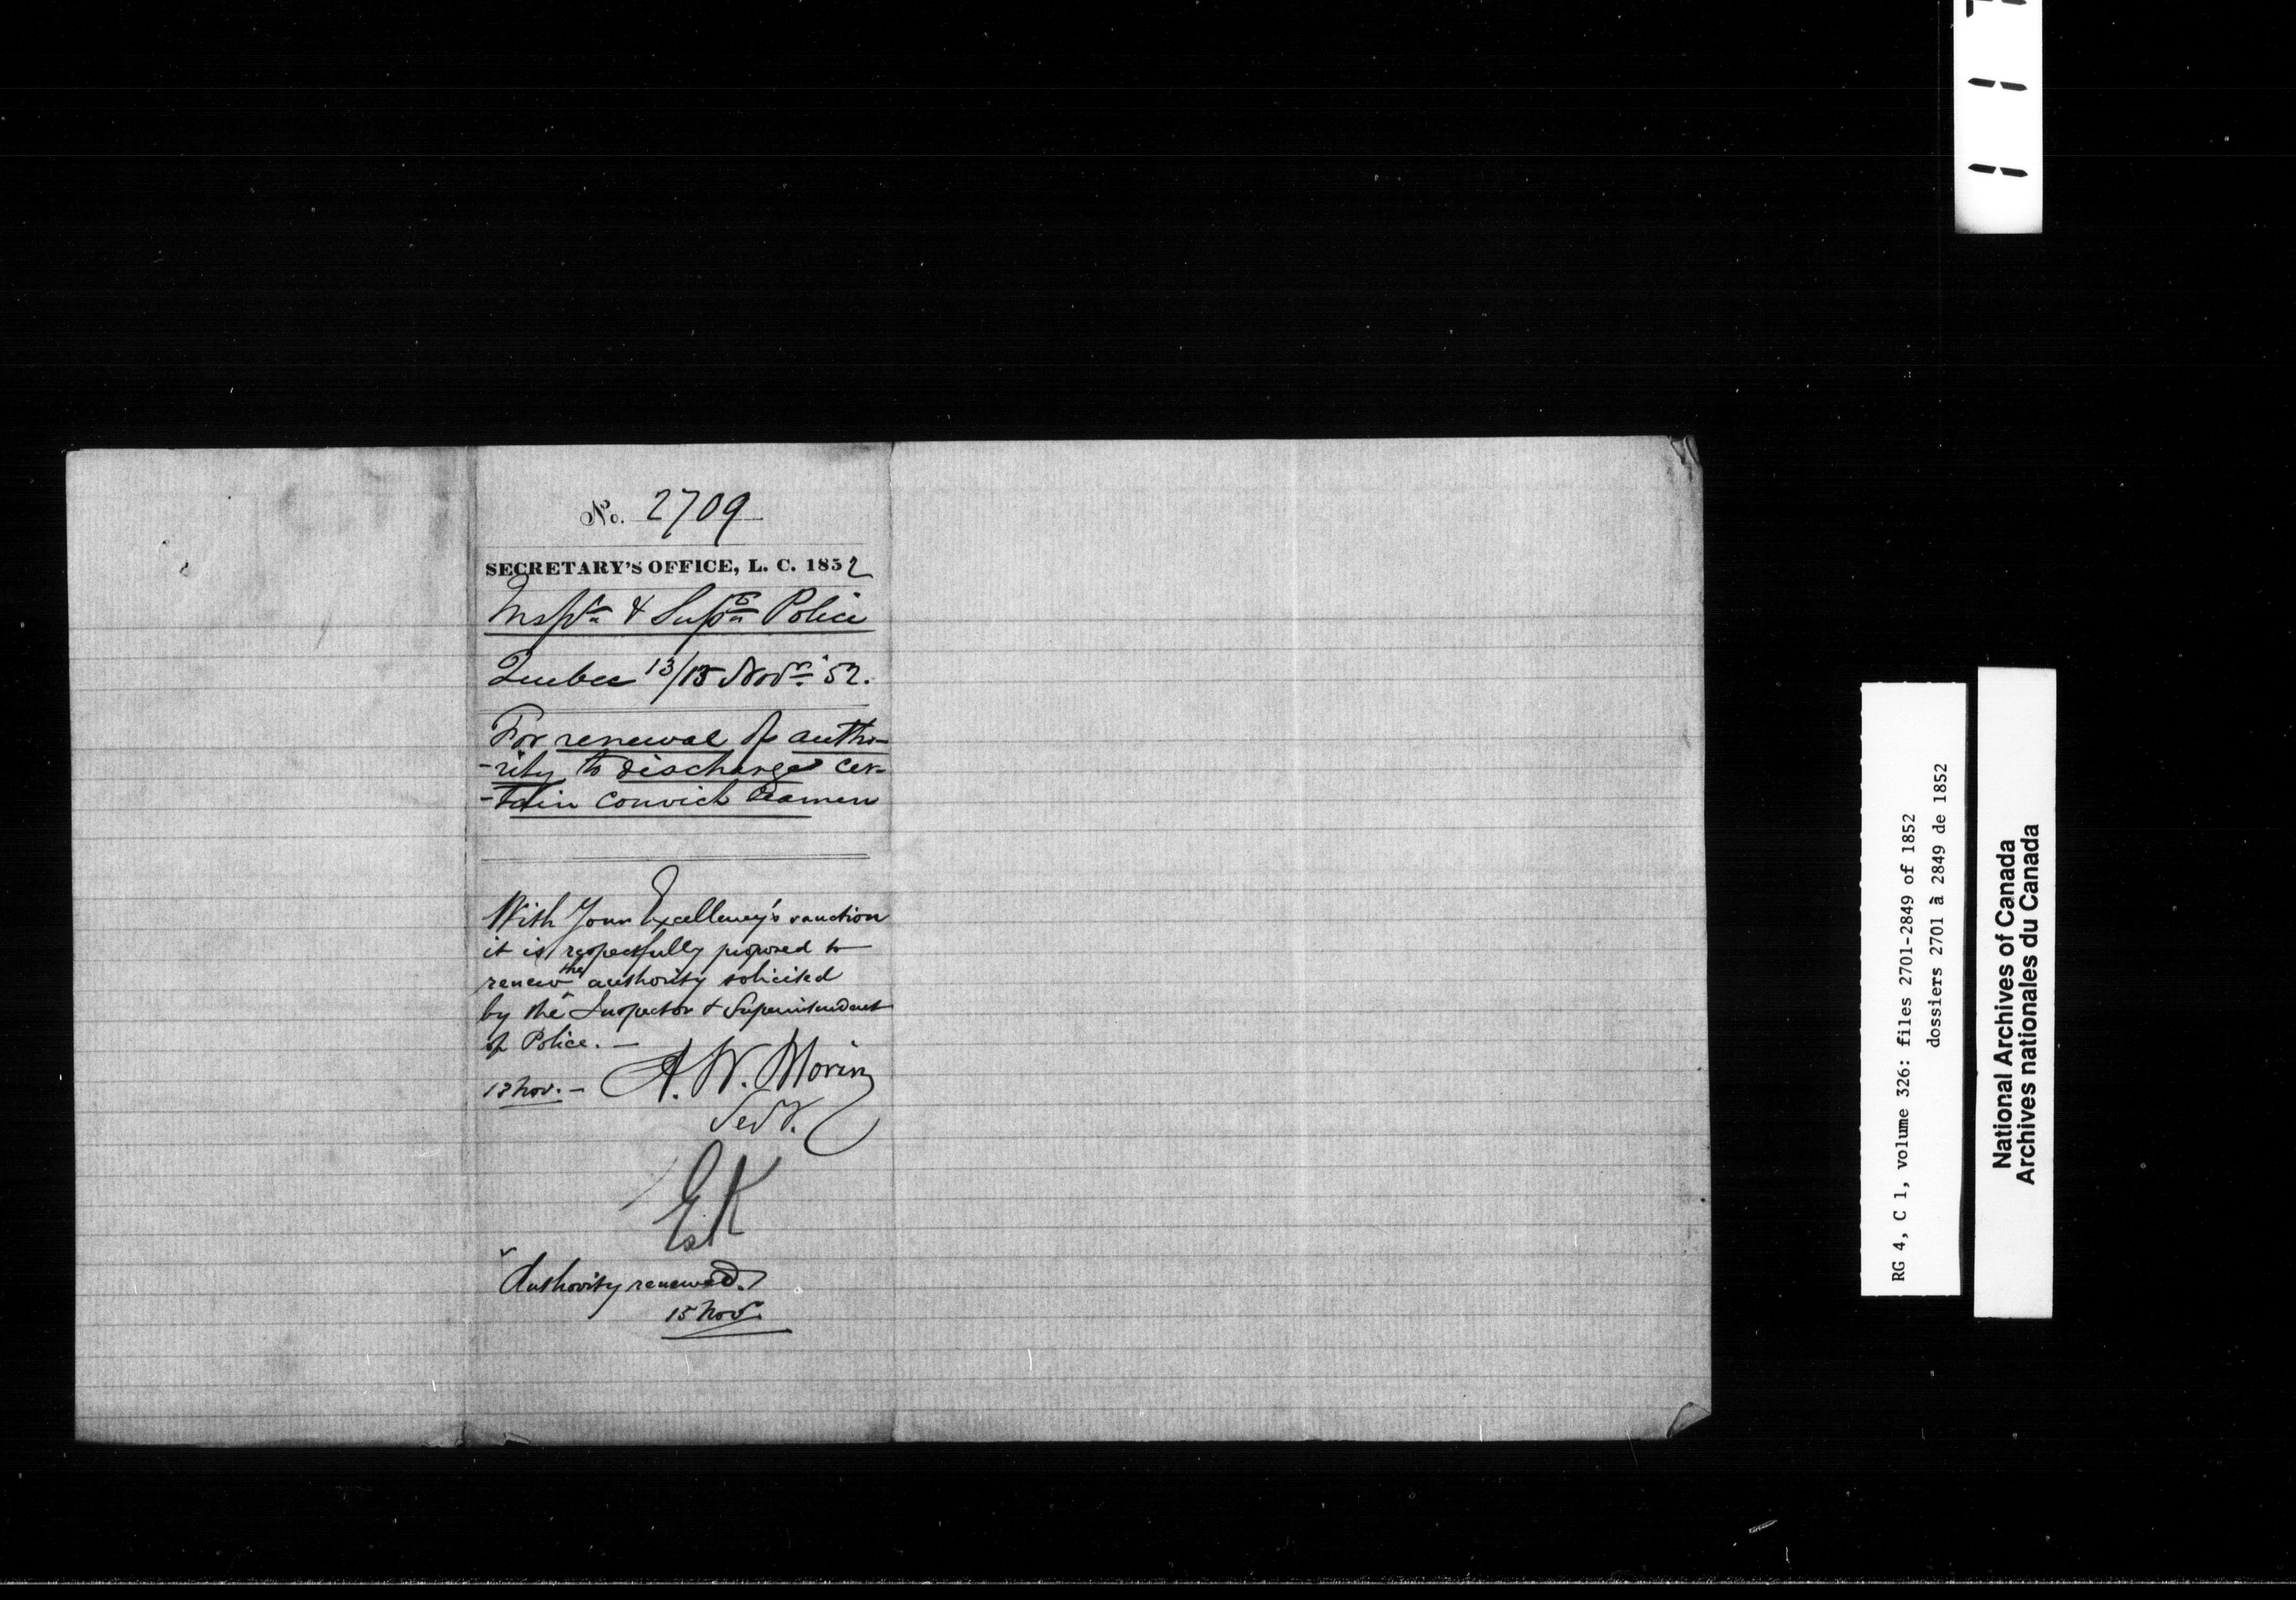 No. 2709
SECRETARY'S OFFICE, L. C. 1852
Inspr. & Supt. Police
Quebec 13/15 Novr. '52.
For renewal of autho-
-rity to discharge cer-
-tain convict Seamen
With Your Excellency's sanction
it is respectfully proposed to
renew the authority solicited
by the Inspector & Superintendent
of Police. —
13 Nov. — A. N. Morin
Secy.
E & K
Authority renewed.
15 Nov.
RG 4, C 1, volume 326: files 2701-2849 of 1852
dossiers 2701 à 2849 de 1852
National Archives of Canada
Archives nationales du Canada